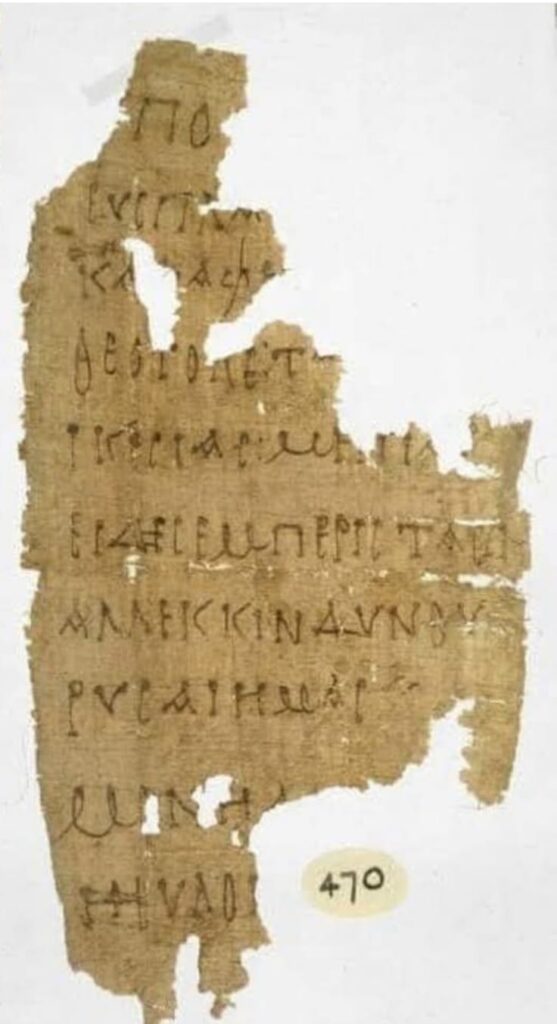 ΠΟ
ΕΥCΠΛ
ΚΑΤΑΦΕ
ΘΕΟΤΟΚΕΤ
ΙΚΕCΙΑCΜΗΠΑΡ
ΕΙΔΗCΕΜΠΕΡΙCΤΑCΕΙ
ΑΛΛΕΚΚΙΝΔΥΝΟΥ
ΡΥCΑΙΗΜΑC
ΜΟΝΗ
470